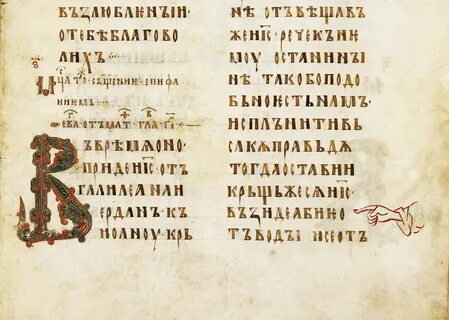 ВЪЗЛЮБЛЕНЪІИ·
О ТЕБѢ БЛАГОВО
ЛИХЪ·
НИИМЪ·
ЕВА ОТЪ МАТ· ГЛА· ГІ·
ВЪ ВРѢМѦ ОНО·
ПРИДЕ ИС҃· ОТЪ
ГАЛИЛЕѨ НА И
ЕРДАНЪ· КЪ
ИОАНОУ· КРЬ
НЕ ОТЪВѢЩАВ
ЖЕ ИС҃· РЕЧЕ КЪ НЕ
МОУ ОСТАНИ НЪІ
НѢ· ТАКО БО ПОДО
БЬНО ѤСТЬ НАМЪ·
ИСПЛЪНИТИ ВЬ
СѦКѪ ПРАВЬДѪ
ТОГДА ОСТАВИ И
КРЬЩЬ ЖЕ СѦ ИС҃·
ВЪЗИДЕ АБИѤ О
ТЪ ВОДЪІ· И СЕ ОТЪ